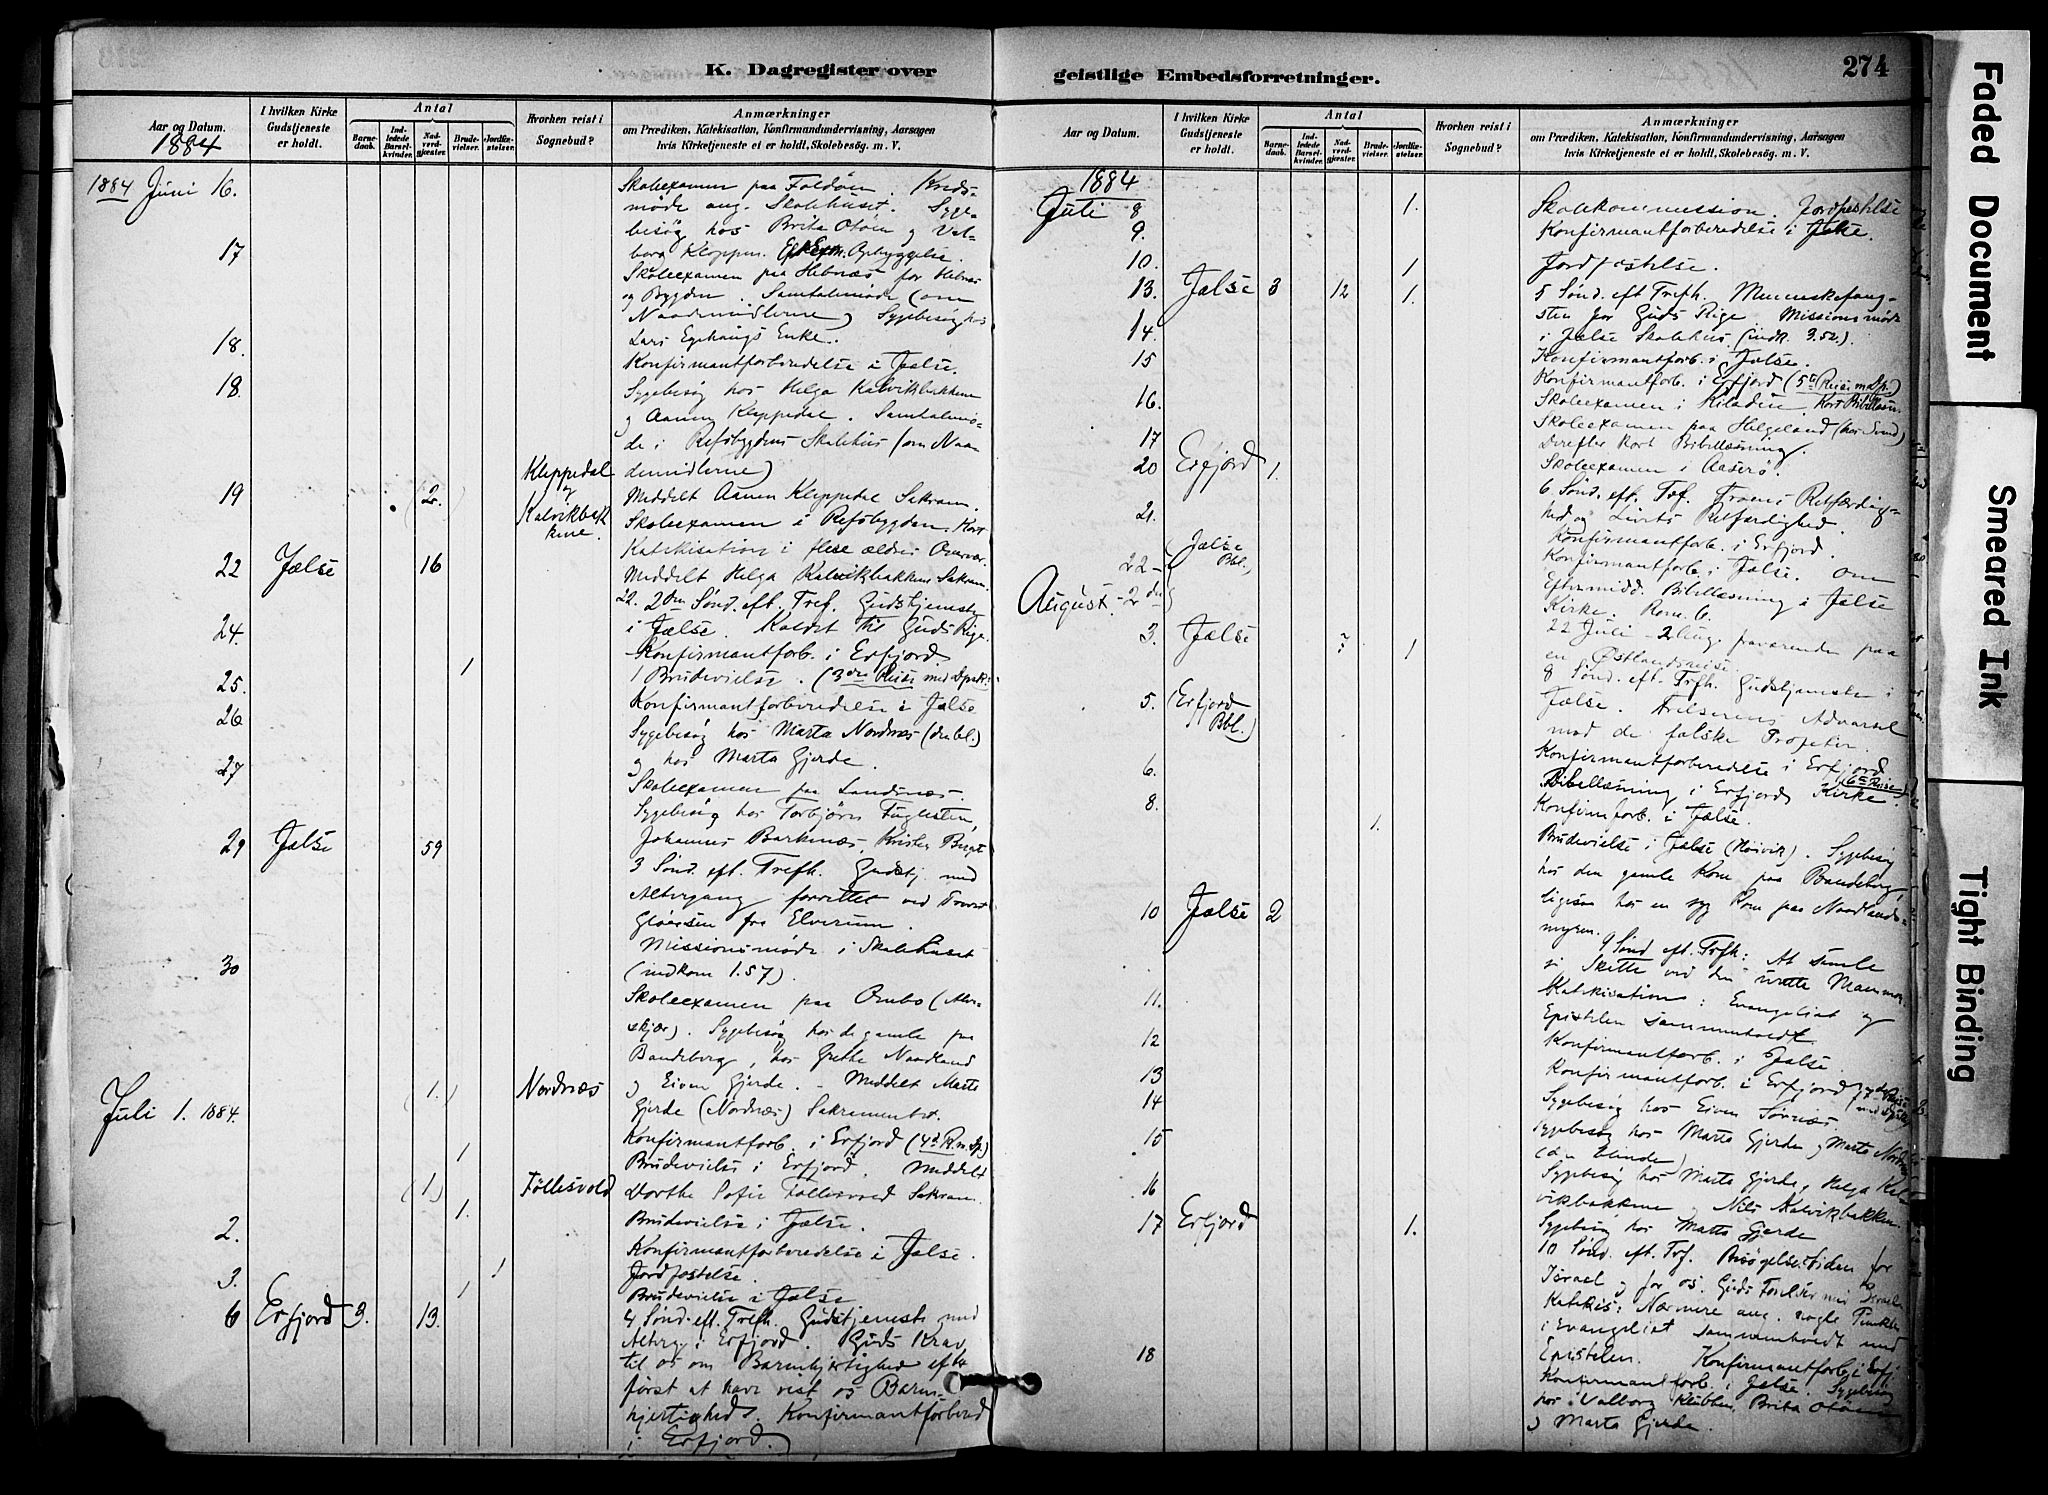 K. Dagregister over
Aar og Datum.
I hvilken Kirke Gudstjeneste er holdt.
Antal
Barnedaab.
Indledede Barselkvinder.
Nadverdgjester.
Brudevielser.
Jordfæstelser.
Hvorhen reist i Sognebud?
Anmærkninger
om Prædiken, Katekisation, Konfirmandundervisning, Aarsagen
hvis Kirketjeneste ei er holdt, Skolebesøg. m. V.
1884
1884 Juni 16.
Skoleexamen paa Foldöen. Kreds-
møde ang. Skolehuset. Syge-
besøg hos Brita Otöen og Val-
borg Kloppen. Opbyggelse.
17
Skoleexamen paa Hebnæs for Hebnæs
og Bygden. Samtalemøde (om
Naademidlerne) Sygebesøg hos
Lars Enke.
18.
Konfirmantforberedelse i Jælse.
18.
Sygebesøg hos Helga Kalvikbakken
og Aanen Kleppedal. Samtalemø-
de i Refsbygdens Skolehus (om Naa-
demidlerne)
19 (2.) Kleppedal og Kalvikbakkene.
Meddelt Aanen Kleppedal Sakram.
Skoleexamen i Refsbygden. Kort
Katekisation i flere ældres Overvær.
Meddelt Helga Kalvikbakken Sakram.
22 Jælse 16
22. 2den Sønd. eft. Tref. Gudstjeneste
i Jælse. Kaldet til Guds Rige.
24.
Konfirmantforb. i Erfjord.
1
1 Brudevielse. (3die Reise med
25.
Konfirmantforberedelse i Jælse
26
Sygebesøg hos Marta Nordnæs (den bl.)
og hos Marta Gjerde.
27
Skoleexamen paa Sandsnæs.
Sygebesøg hos Torbjørn
Johannes Barkenæs,
29 Jælse 59
3 Sønd. eft. Trefh. Gudstj. med
Altergang forrettet ved
fra Elverum.
Missionsmøde i Skolehuset
(indkom 1.57).
30
Skoleexamen paa Ombo (
skjær). Sygebesøg hos de gamle paa
Bandeberg, hos Grethe Naadland
og Eiven Gjerde. - Meddelt Marta
Gjerde (Nordnæs) Sakramentet.
Juli 1. 1884. (1.) Nordnæs
Konfirmantforb. i Erfjord (4de R. m. Sp.)
1
Brudevielse i Erfjord. Meddelt
(1) Föllesvold
Dorthe Sofie Föllesvold Sakram.
1.
Brudevielse i Jælse.
2.
Konfirmantforberedelse i Jælse.
1
Jordfæstelse.
3. 1
Brudevielse i Jælse
6 Erfjord 3. 13.
4 Sønd. eft. Trefh. Gudstjeneste med
Alterg. i Erfjord. Guds Krav
til os om Barmhjertighed efter
først at have vist os Barm-
hjertighed. Konfirmantforbered
i Erfjord.
geistlige Embedsforretninger.
274
Aar og Datum.
I hvilken Kirke Gudstjeneste er holdt.
Antal
Barnedaab.
Indledede Barselkvinder.
Nadverdgjester.
Brudevielser.
Jordfæstelser.
Hvorhen reist i Sognebud?
Anmærkninger
om Prædiken, Katekisation, Konfirmandundervisning, Aarsagen
hvis Kirketjeneste ei er holdt, Skolebesøg. m. V.
1884
Juli 8 1.
Skolekommission. Jordfæstelse
9.
Konfirmantforberedelse i Jælse.
10. 1
Jordfæstelse.
13. Jælse 3 12 1.
5 Sønd. eft Trefh. Menneskefang-
sten for Guds Rige. Missionsmøde
i Jælse Skolehus (indk. 3.52.).
14.
Konfirmantforb. i Jælse.
15
Konfirmantforb. i Erfjord (5te Reise m Sp.)
16.
Skoleexamen i Kiladen. Kort Bibellæsn.
Skoleexamen paa Helgeland (hos Svend)
Derefter kort Bibellæsning.
17
Skoleexamen i Aaserö.
20 Erfjord 1.
6 Sønd. eft. Tref. Troens Retfærdig-
hed og Livets Retfærdighed.
Konfirmantforb. i Erfjord.
21.
Konfirmantforb. i Jælse. Om
Jælse Bbl.)
Eftermidd. Bibellæsning i Jælse
Kirke. Rom. 6.
22 -
August - 2den
22 Juli - 2 Aug. fraværende paa
en Østlandsreise.
3. Jælse 7 1
8 Sønd. eft. Trefh. Gudstjeneste i
Jælse. Frelserens Advarsel
mod de falske Profeter.
5. (Erfjord Bbl.)
Konfirmantforberedelse i Erfjord
(6te Reise)
Bibellæsning i Erfjords Kirke.
6.
Konfirmforb. i Jælse.
8. 1.
Brudevielse i Jælse (Høivik). Sygebesøg
hos den gamle Kone paa Bandeberg
ligesaa hos en syg Kone paa Naadlands-
myren.
10 Jælse 2
9 Sønd. eft. Trfh: At samle
Skatte ved den urette Mammon.
Katekisation: Evangeliet og
Epistelen sammenholdt.
11.
Konfirmantforb. i Jælse.
12
Konfirmantforb. i Erfjord (7de Reise
13
Sygebesøg hos Eiven Sørnæs.
14
Sygebesøg hos Marta Gjerde og Marta Nordnæs
(den blinde)
15
Sygebesøg hos Marta Gjerde, Helga Kal-
vikbakkene og Nils Kalvikbakken
16
Sygebesøg hos Marta Gjerde
17 Erfjord 1.
10 Sønd. eft. Tref. Besøgelsestiden for
Israel og for os. Guds Forelskr med Israel
Katekis: Nærmere ang. nogle Punkter
i Evangeliet sammenholdt med
Epistelen. Konfirmantforb. i Erfj.
18
Konfirmantforb. i Jælse. Sygebesøg
hos Valborg Klubben, Brita Otöen
og Marta Gjerde.
Faded Document
Smeared Ink
Tight Binding